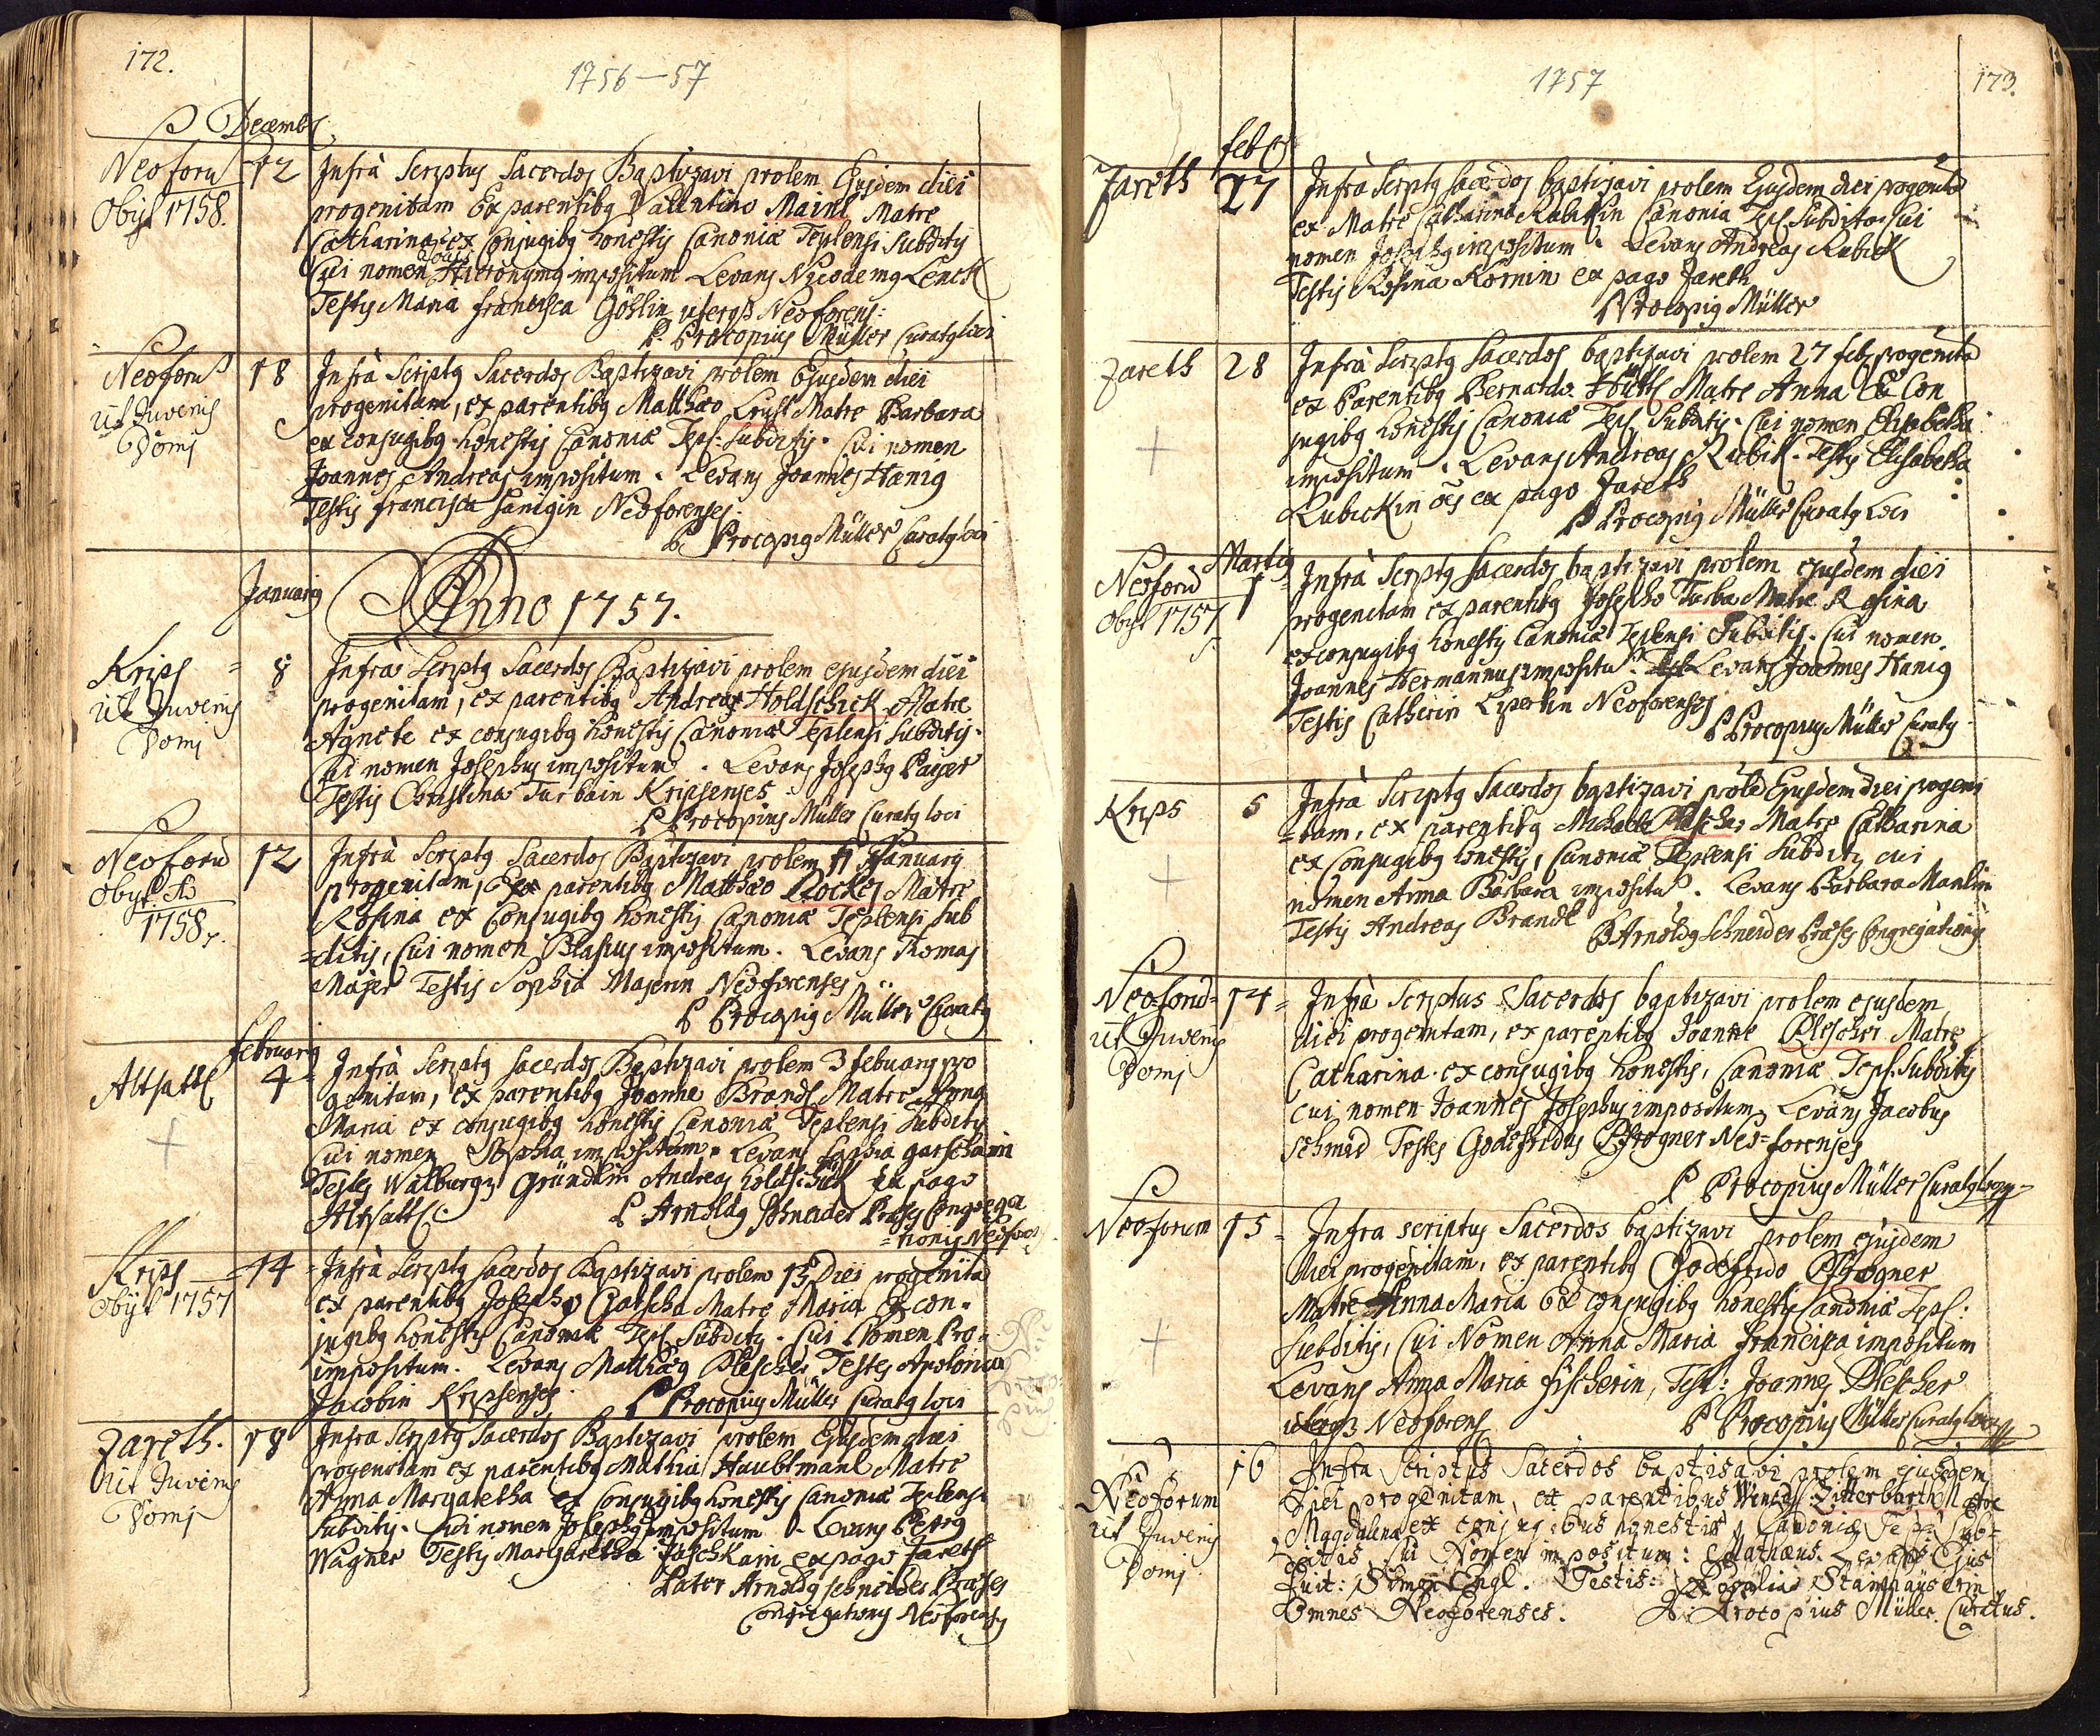 172.
1756—57
Decemb
Neoforu
12
Obijt 1758.
Infrà Scriptus Sacerdos Baptizavi prolem Ejusdem diei
progenitam Ex parentibg Valentino Mainl Matre
Catharina ex Conjugibg honestis Canoniæ Teplensi Subditis
Cui nomen Hieronymg impositum Levans Nicodemg Lenck
Testis Maria Francisca Göslin utergs Neoforens:
P. Procopius Müller Curatg loci
Neoforu
18
ut Juvenis
Domi
Infrà Scriptg Sacerdos Baptizavi prolem Ejusdem diei
progenitam, ex parentibg Matthæo Matre Barbara
ex conjugibg honestis Canoniæ Tepl: Subditis. Cui nomen
Joannes Andreas impositum. Levans Joannes Hanig
Testis Francisca Hanigin Neoforenses.
P. Procopig Müller Curatg loci
Januarij
Anno 1757.
Krips
8
ut Juvenis
Domi
Infrà Scriptg Sacerdos Baptizavi prolem ejusdem diei
progenitam, ex parentibg Andreas Holdschick Matre
Agnete ex conjugibg honestis Canoniæ Teplensi Subditis.
Cui nomen Josephus impositum. Levans Josephg Paiser
Testis Christina Turbain Kripsenses
P Procopius Müller Curatg loci
Neoforu
12
Obijt
1758.
Infrà Scriptg Sacerdos Baptizavi prolem 11 Januarij
progenitam, Ex parentibg Matthæo Nockes Matre
Rosina ex Conjugibg honestis Canoniæ Teplensi Sub
=ditis, Cui nomen Blasius impositum. Levans Thomas
Majer Testis Sophia Majerin Neoforenses
P Procopig Müller Curatg
Februarij
Altsattl
4
Infrà Scriptg Sacerdos Baptizavi prolem 3 februarij pro
genitam, ex parentibg Joanne Brandl Matre Anna
Maria ex conjugibg honestis Canoniæ Teplensi Subditis
Cui nomen Sophia impositum. Levans Sophia garschain
Testes Walburgis Gründlin Andreas holdschick Ex pago
Altsattl:
P Arnoldg Schneider Præses Congrega
=tionis Neofor
Krips
14
Obijt 1757
Infrà Scriptg Sacerdos Baptizavi prolem 13 Diei progenita
ex parentibg Josepho Garscha Matre Maria Ex con=
jugibg honestis Canoniæ Tepl Subditis. Cui Nomen Pro=
impositum. Levans Matthæg Plescher Testes Apolonia
Jacobin Kripsenses.
P Procopius Müller Curatg loci
Zareth.
18
ut Juvenis
Domi
Infra Scriptg Sacerdos Baptizavi prolem Ejusdem diei
progenitam ex parentibg Mathia Haubtmanl Matre
Anna Margaretha ex Conjugibg honestis Canoniæ Teplensi
Subditis. Cui nomen Josephg impositum. Levans Petrg
Wagner Testis Margaretha Jaschkain ex pago Zareth
Pater Arnoldg Schneider Præses
Congregationis Neoforensis
1757
173.
feb
Zareth
27
Infrà Scriptg Sacerdos baptizavi prolem Ejusdem diei progenita
ex Matre Catharina Rubickin Canonia Tepl Subdita. Cui
nomen Josephg impositum. Levans Andreas Rubick
Testis Rosina Kornin ex pago Zareth
P Procopig Müller
Zareth
28
Infrà Scriptg Sacerdos baptizavi prolem 27 feb progenita
ex Parentibg Bernardo Matre Anna Ex Con
jugibg honestis Canoniæ Tepl Subditis. Cui nomen Elisabetha
impositum. Levans Andreas Rubick. Testis Elisabetha
Rubickin ex pago Zareth
P Procopig Müller Curatg loci
Martig
Neoforu
1
Obijt 1757
Infrà Scriptg Sacerdos baptizavi prolem ejusdem diei
progenitam ex parentibg Josepho Turba Matre Rosina
ex conjugibg honestis Canoniæ Teplensi Subditis. Cui nomen
Joannes Hermannus impositu. Levans Joannes Hanig
Testis Catherin Neoforenses
P Procopius Müller Curatg
Krips
5
Infrà Scriptg Sacerdos baptizavi prole Ejusdem diei progeni
=tam, ex parentibg Michaele Plescher Matre Catharina
ex Conjugibg honestis, Canoniæ Teplensi Subditis cui
nomen Anna Barbara impositu. Levans Barbara Manlin
Testis Andreas Brandl
P Arnoldg Schneider Præses Congregationis
Neoforu
14
ut Juvenis
Domi
Infrà Scriptus Sacerdos baptizavi prolem ejusdem
diei progenitam, ex parentibg Joanne Plescher Matre
Catharina. ex conjugibg honestis, Canoniæ Tepl. Subditis
cui nomen Joannes Josephus impositum, Levans Jacobus
Schmid Testes Godefridus Pfrogner Neo=forenses
P Procopius Müller Curatg loci
Neoforum
15
Infra scriptus Sacerdos baptizavi prolem ejusdem
diei progenitam, ex parentibg Godefrido Pfrogner
Matre Anna Maria Ex conjugibg honestis Canoniæ Tepl:
Subditis, Cui Nomen Anna Maria Francisca impositum
Levans Anna Maria fischerin, Test: Joannes Plescher
utergs Neoforens
P Procopius Müller Curatg loci
Neoforum
16
ut Juvenis
Domi
Infra Scriptus Sacerdos baptisavi prolem ejusdem
Diei progenitam, ex parentibus Wencesl Zitterbarth Matre
Magdalena ex conjugibus honestis, Canoniæ Tepl: Sub=
ditis Cui Nomen impositum: Mathæus. Levans Ejus
Fuit: Simon Engl. Testis: Rosalia Stainhauserin
Omnes Neoforenses. P. Procopius Müller. Curatus.